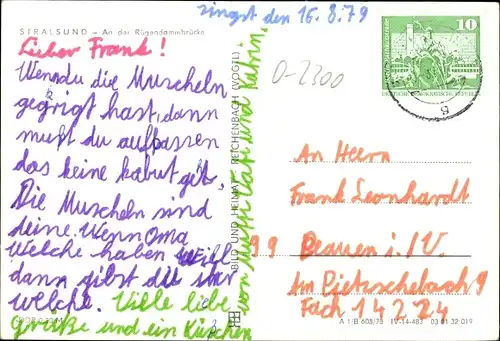 zingst den 16.8.79
STRALSUND - An der Rügendammbrücke
Lieber Frank!
Wenn du die Muscheln
gegrigt hast, dann
must du aufpassen
das keine kabut get.
Die Muscheln sind
deine. Wenn Oma
Welche haben will
dann gibst du ihr
welche. Viele liebe
Grüße und ein Küschen
von Mutti Vati und Katrin.
BILD UND HEIMAT REICHENBACH (VOGTL)
0-2300
10
An Herrn
Frank Leonhardt
99 Plauen i./V.
Am Pietzschebach 9
Fach 14224
A 1/B 608/73 IV-14-483 03 01 32 019